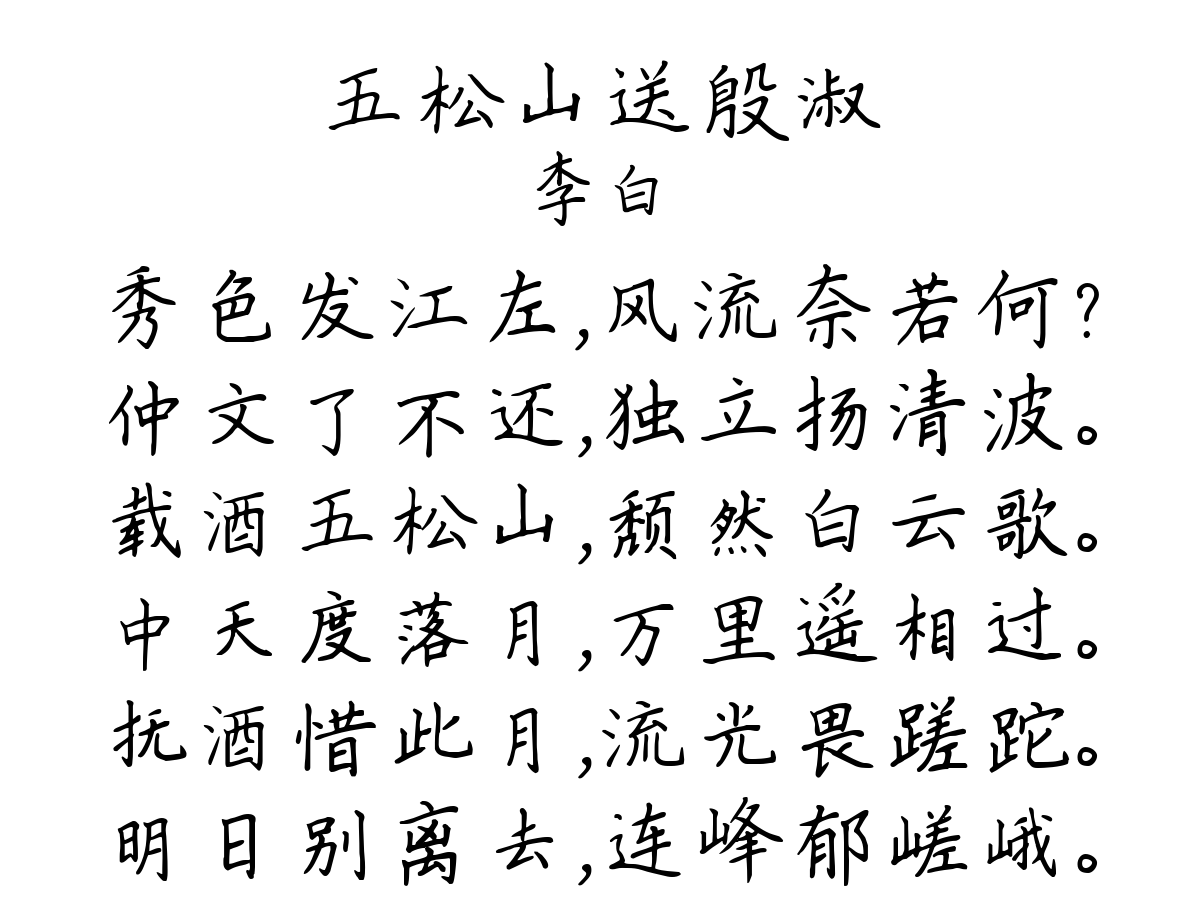 五松山送殷淑
李白
秀色发江左,风流奈若何?
仲文了不还,独立扬清波。
载酒五松山,颓然白云歌。
中天度落月,万里遥相过。
抚酒惜此月,流光畏蹉跎。
明日别离去,连峰郁嵯峨。